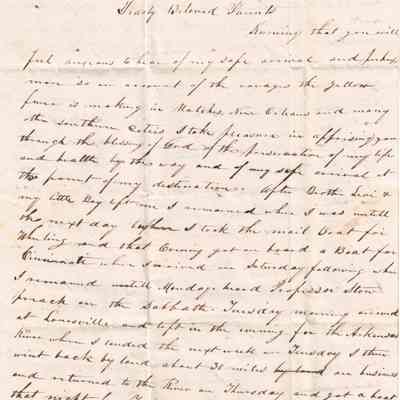 Dearly Beloved Parents
Knowing that you will
feel anxious to hear of my safe arrival and perhaps
more so on account of the ravages the yellow
fever is making in Natches, New Orleans and many
other southern Cities I take pleasure in apprising you
through the blessing of God of the preservation of my life
and health by the way and of my safe arrival at
the point of my destination. After Brother Levi &
my little Boy left me I remained where I was untill
the next day when I took the mail Boat for
Wheeling and that Evening got on board a Boat for
Cincinnate where I arrived on Saturday following where
I remained untill Monday heard Professor Stow
preach on the Sabbath. Tuesday morning arrived
at Louisville and left in the evening for the Arkansas
River where I landed the next week on Tuesday I then
went back by land about 30 miles on business
and returned to the River on Thursday and got a boat
that night